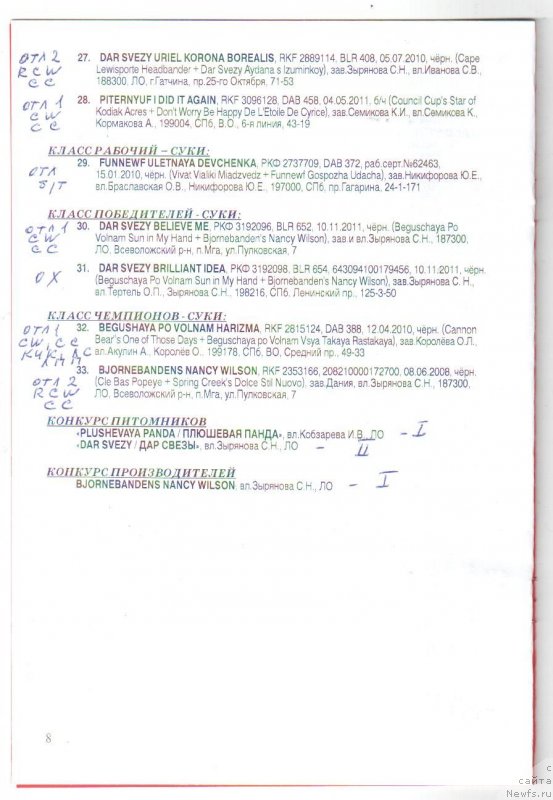 ОТЛ 2
RCW
CC
27. DAR SVEZY URIEL KORONA BOREALIS, RKF 2889114, BLR 408, 05.07.2010, чёрн. (Cape
Lewisporte Headbander + Dar Svezy Aydana s Izuminkoy), зав.Зырянова С.Н., вл.Иванова С.В.,
188300, ЛО, г.Гатчина, пр.25-го Октября, 71-53
ОТЛ 1
CW
CC
28. PITERNYUF I DID IT AGAIN, RKF 3096128, DAB 458, 04.05.2011, б/ч (Council Cup's Star of
Kodiak Acres + Don't Worry Be Happy De L'Etoile De Cyrice), зав.Семикова К.И., вл.Семикова К.,
Кормакова А., 199004, СПб, В.О., 6-я линия, 43-19
КЛАСС РАБОЧИЙ – СУКИ:
ОТЛ
б/т
29. FUNNEWF ULETNAYA DEVCHENKA, РКФ 2737709, DAB 372, раб.серт.№62463,
15.01.2010, чёрн. (Vivat Vialiki Miadzvedz + Funnewf Gospozha Udacha), зав.Никифорова Ю.Е.,
вл.Браславская О.В., Никифорова Ю.Е., 197000, СПб, пр.Гагарина, 24-1-171
КЛАСС ПОБЕДИТЕЛЕЙ - СУКИ:
ОТЛ 1
CW
CC
30. DAR SVEZY BELIEVE ME, РКФ 3192096, BLR 652, 10.11.2011, чёрн. (Beguschaya Po
Volnam Sun in My Hand + Bjornebanden's Nancy Wilson), зав.и вл.Зырянова С.Н., 187300,
ЛО, Всеволожский р-н, п.Мга, ул.Пулковская, 7
ОХ
31. DAR SVEZY BRILLIANT IDEA, РКФ 3192098, BLR 654, 643094100179456, 10.11.2011, чёрн.
(Beguschaya Po Volnam Sun in My Hand + Bjornebanden's Nancy Wilson), зав.Зырянова С.Н.,
вл.Тертель О.П., Зырянова С.Н., 198216, СПб, Ленинский пр., 125-3-50
КЛАСС ЧЕМПИОНОВ - СУКИ:
ОТЛ 1
CW, CC
32. BEGUSHAYA PO VOLNAM HARIZMA, RKF 2815124, DAB 388, 12.04.2010, чёрн. (Cannon
Bear's One of Those Days + Beguschaya po Volnam Vsya Takaya Rastakaya), зав.Королёва О.Л.,
вл.Акулин А., Королёв О., 199178, СПб, ВО, Средний пр., 49-33
ОТЛ 2
RCW
CC
33. BJORNEBANDENS NANCY WILSON, RKF 2353166, 208210000172700, 08.06.2008, чёрн.
(Cle Bas Popeye + Spring Creek's Dolce Stil Nuovo), зав.Дания, вл.Зырянова С.Н., 187300,
ЛО, Всеволожский р-н, п.Мга, ул.Пулковская, 7
КОНКУРС ПИТОМНИКОВ
«PLUSHEVAYA PANDA / ПЛЮШЕВАЯ ПАНДА», вл.Кобзарева И.В., ЛО – I
«DAR SVEZY / ДАР СВЕЗЫ», вл.Зырянова С.Н., ЛО – II
КОНКУРС ПРОИЗВОДИТЕЛЕЙ
BJORNEBANDENS NANCY WILSON, вл.Зырянова С.Н., ЛО – I
8
с
сайта
Newfs.ru